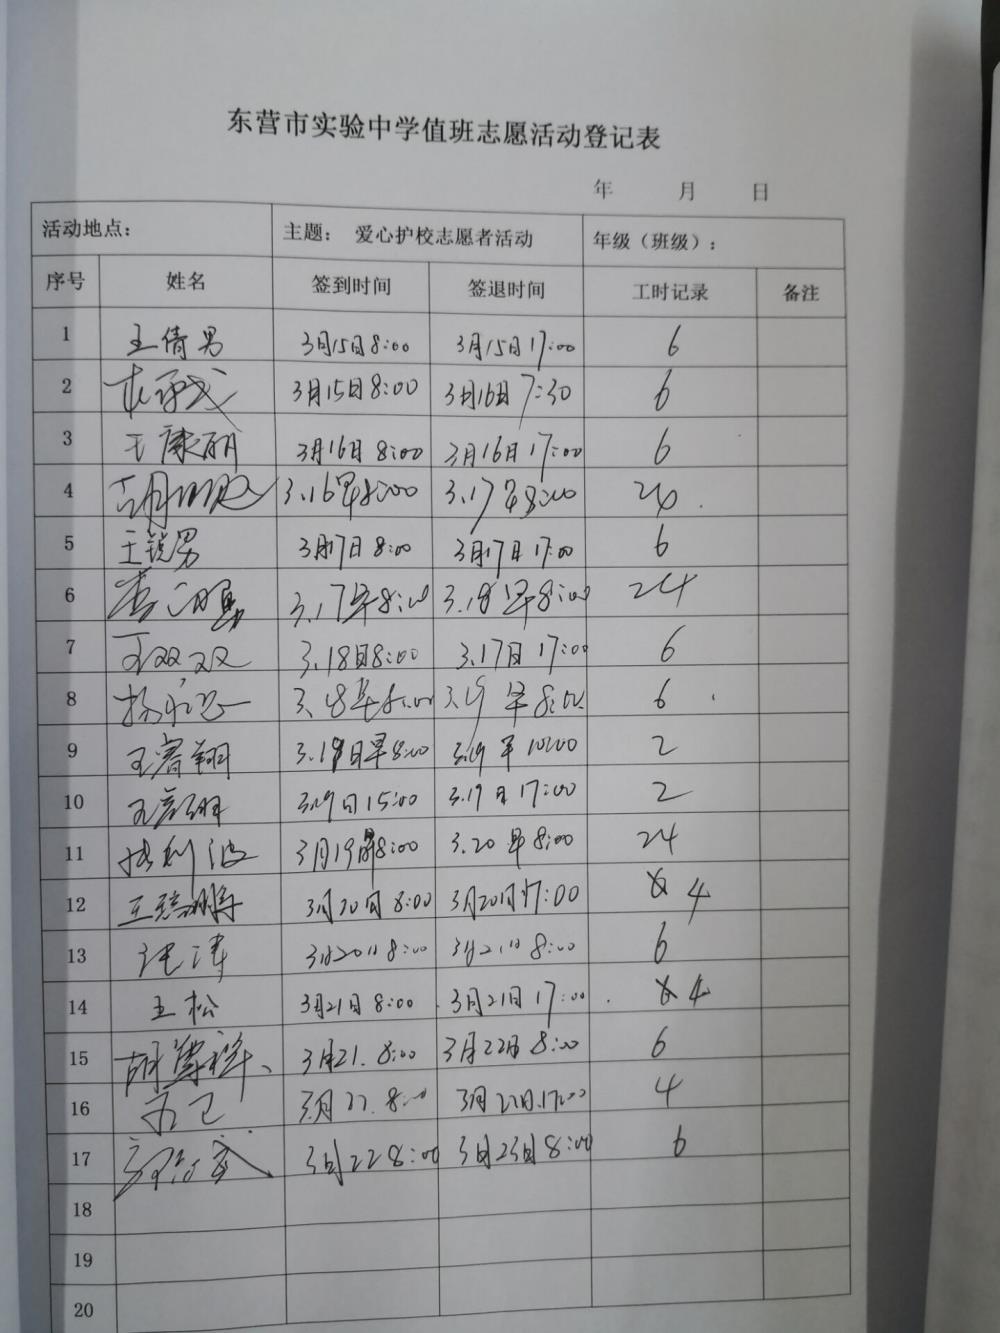 东营市实验中学值班志愿活动登记表
年 月 日
活动地点： 主题： 爱心护校志愿者活动 年级（班级）：
序号 姓名 签到时间 签退时间 工时记录 备注
1 王倩男 3月15日8:00 3月15日17:00 6
2 3月15日8:00 3月16日7:30 6
3 王康丽 3月16日8:00 3月16日17:00 6
4 3.16早8:00 3.17早8:00 24
5 王锐男 3月17日8:00 3月17日17:00 6
6 3.17早8:00 3.18早8:00 24
7 王双双 3.18日8:00 3.17日17:00 6
8 3.18早8:00 3.19早8:00 6
9 王睿翔 3.19日早8:00 3.19早10:00 2
10 3.19日15:00 3.19日17:00 2
11 3月19早8:00 3.20早8:00 24
12 3月20日8:00 3月20日17:00 4
13 3月20日8:00 3月21日8:00 6
14 王松 3月21日8:00 3月21日17:00 4
15 3月21.8:00 3月22日8:00 6
16 3月22.8:00 3月22日.17:00 4
17 3月22 8:00 3月23日8:00 6
18
19
20